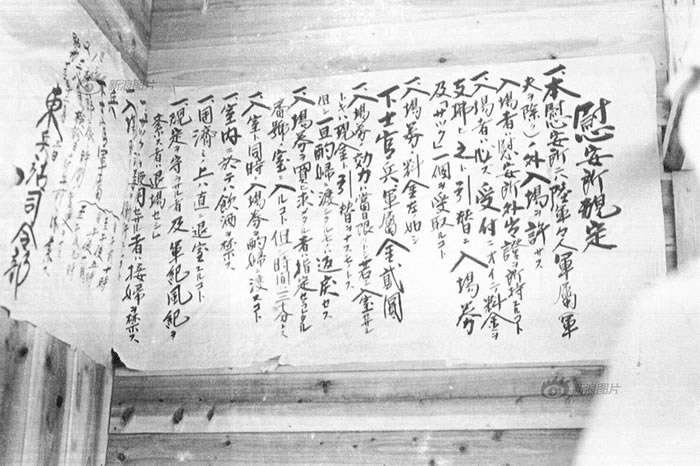 慰安所規定
一、本慰安所ニハ陸軍々人軍属(軍
夫ヲ除ク)ノ外入場ヲ許サス
入場者ハ慰安所外出證ヲ所持スルコト
一、入場者ハ必ス受付ニオイテ料金ヲ
支拂ヒ之ト引替ニ入場券
及「サック」一個ヲ受取ルコト
一、入場券ノ料金左ノ如シ
下士官、兵、軍属金貳圓
一、入場券ノ効力ハ當日限リトシ若シ入室セサル
トキハ現金ト引替ヲナスモノトス
但シ一旦酌婦ニ渡シタルモノハ返戻セス
一、入場券ヲ買ヒ求メタル者ハ指定セラレタル
番號ノ室ニ入ルコト但シ時間ハ三十分トス
一、入室ト同時ニ入場券ヲ酌婦ニ渡スコト
一、室内ニ於テハ飲酒ヲ禁ス
一、用濟ミノ上ハ直ニ退室スルコト
一、規定ヲ守ラサル者及軍紀風紀ヲ
紊ス者ハ退場セシム
一、サックヲ使用セサル者ハ接婦ヲ禁ス
東兵站司令部
新浪图片
新浪图片